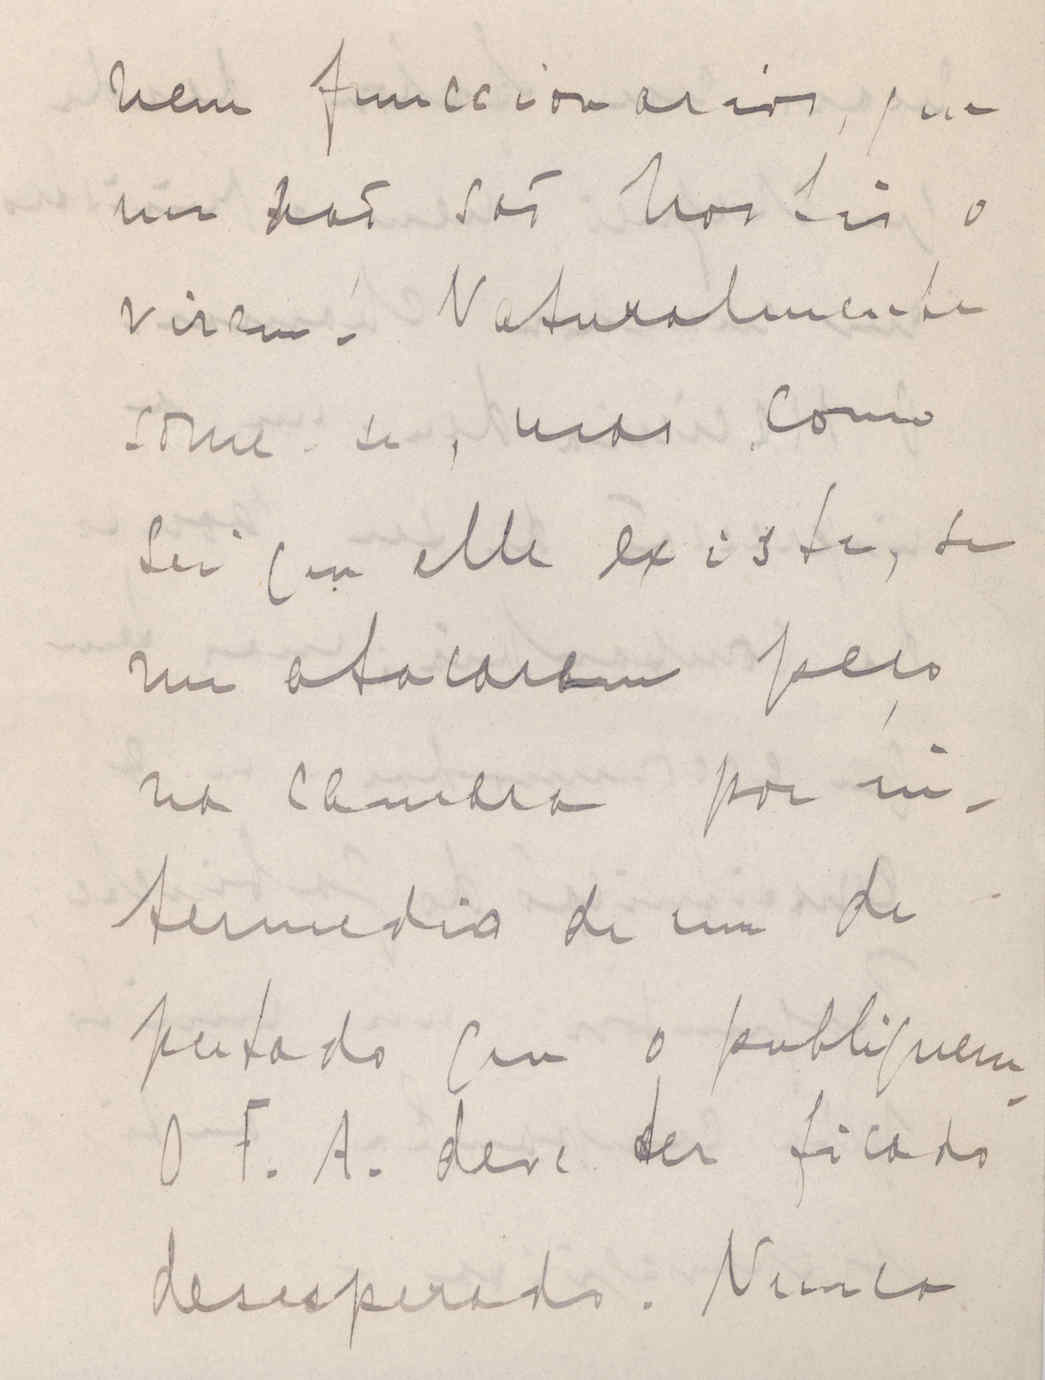 nem funccionarios, que
me não são hostis o
virem. Naturalmente
some-se, mas como
sei que elle existe, se
me atacarem peço
na camara por in-
termedio de um de
putado que o publiquem.
O F. A. deve ter ficado
desesperado. Nunca